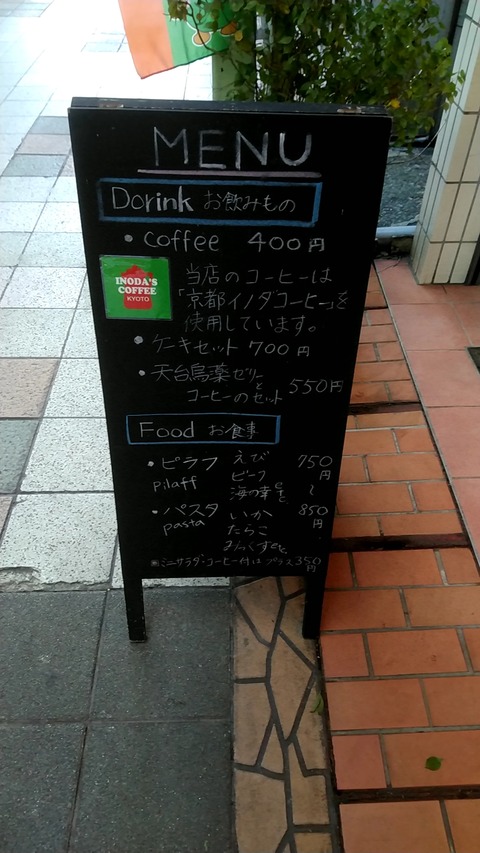 MENU
Dorink お飲みもの
・coffee 400円
INODA'S
COFFEE
KYOTO
当店のコーヒーは
「京都イノダコーヒー」を
使用しています。
・ケーキセット 700円
・天台烏薬ゼリーと
コーヒーのセット 550円
Food お食事
・ピラフ えび 750円
pilaff ビーフ 〜
海の幸etc
・パスタ いか 850円
pasta たらこ
みっくすetc
■ミニサラダ・コーヒー付は プラス350円